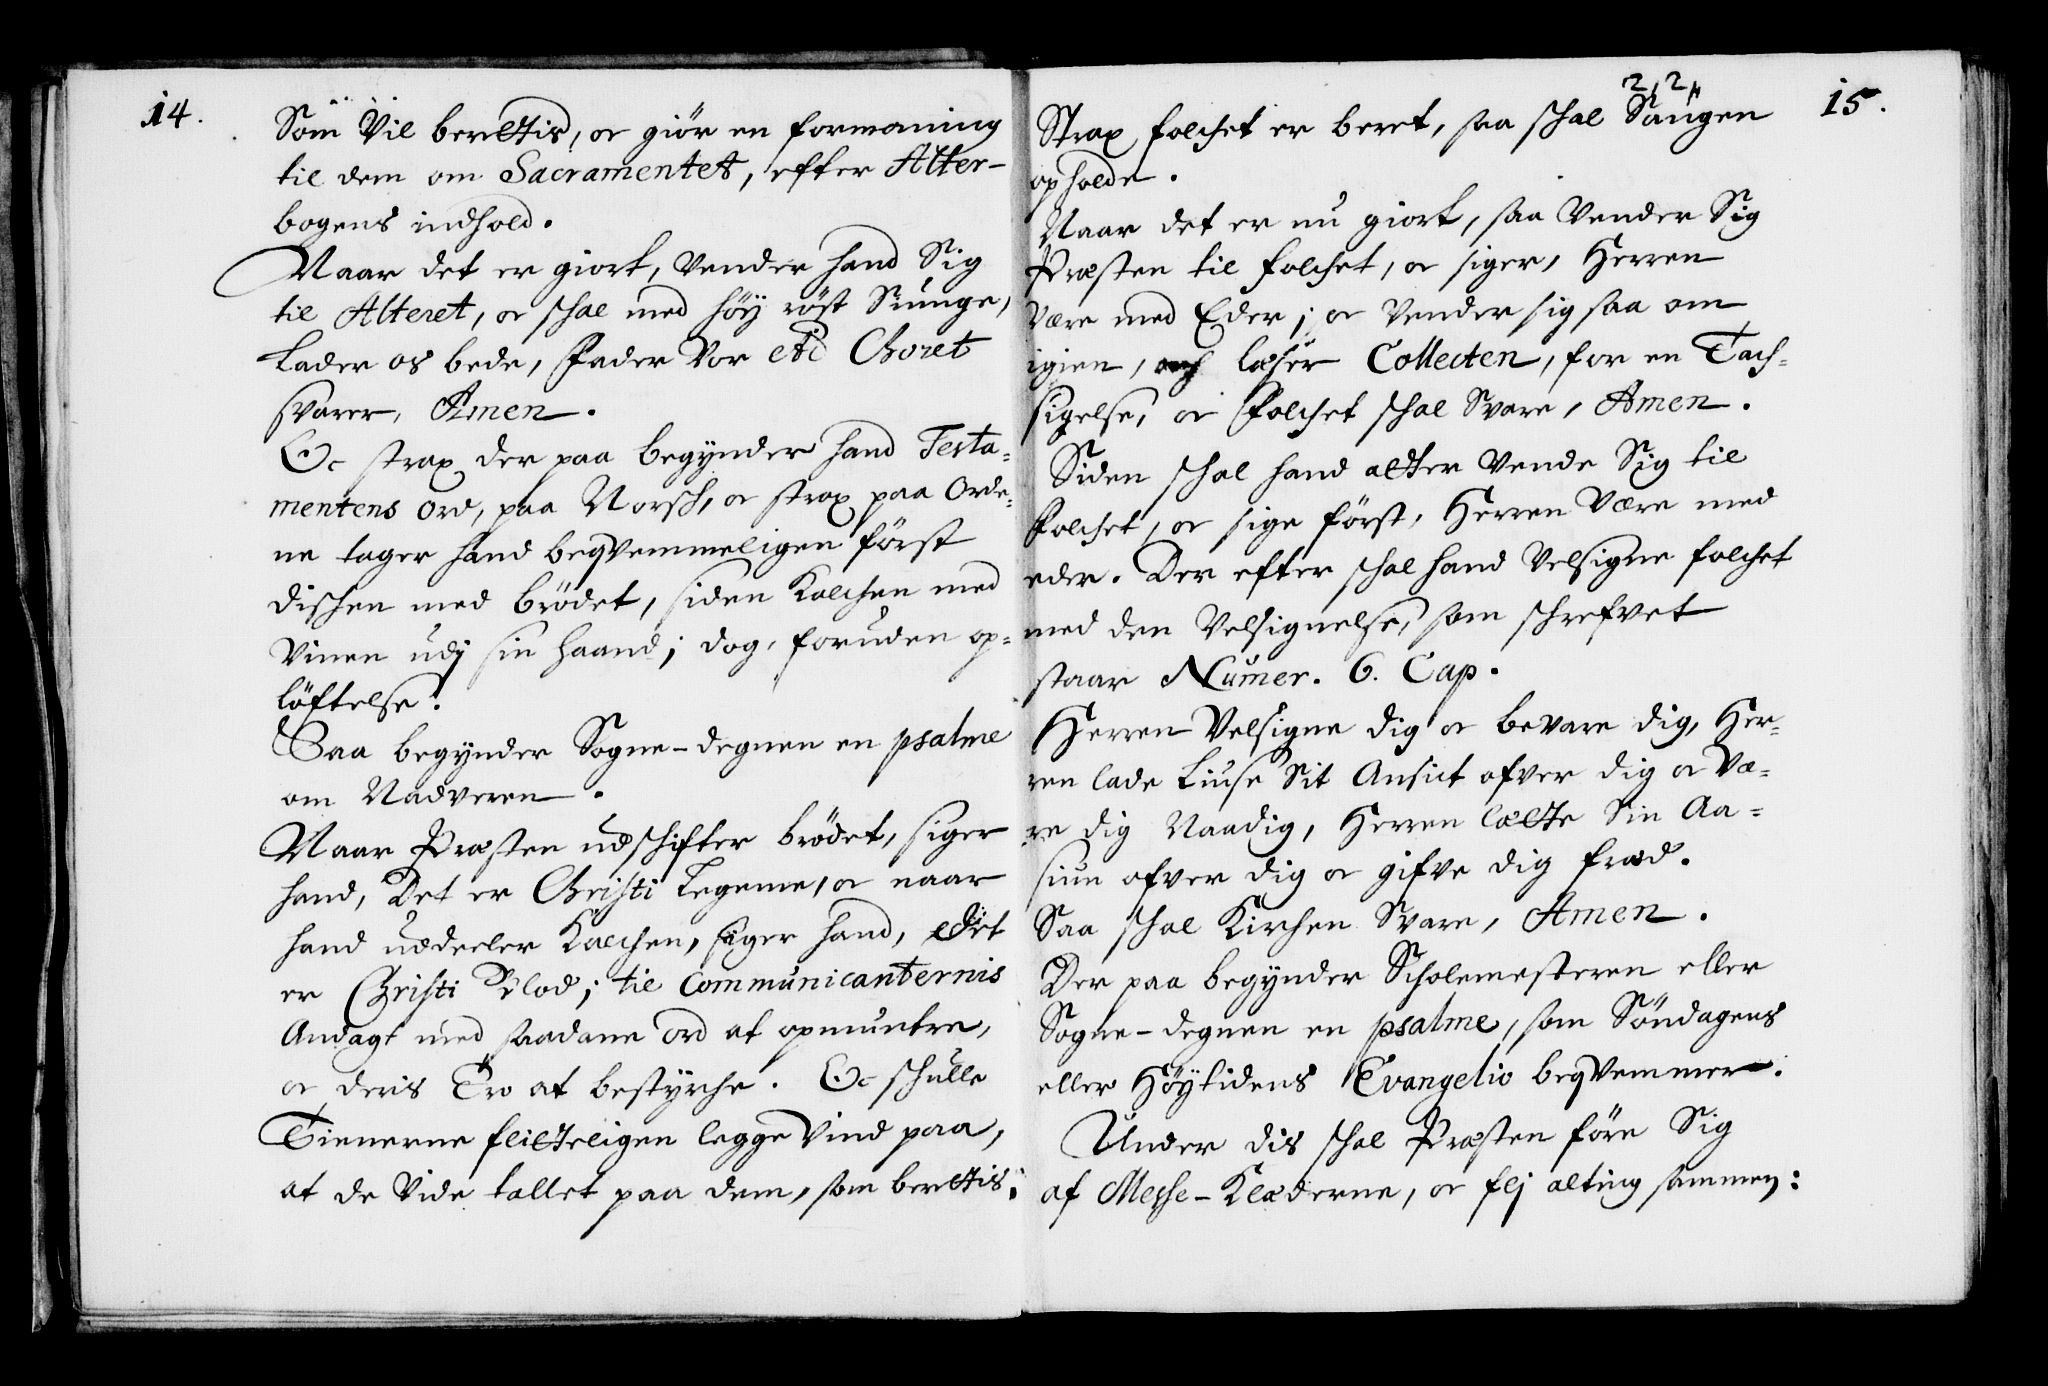 14.
Som vil berettis, oc giör en formaning
til dem om Sacramentet, efter Alter-
bogens indhold.
Naar det er giort, vender hand Sig
til Alteret, oc schal med höy röst Siunge,
Lader os bede, Fader Vor etc Choret
svarer, Amen.
Oc strax der paa begynder hand Testa-
mentens ord, paa Norsch, oc strax paa Orde-
ne tager hand beqvemmeligen först
dischen med brödet, siden Kalchen med
Vinen udj sin haand; dog, foruden op-
löftelse.
Saa begynder Sogne-degnen en psalme
om Nadveren.
Naar Præsten udschifter brödet, siger
hand, Det er Christi Legeme, oc naar
hand uddeeler Kalchen, siger hand, Det
er Christi Blod; til Communicanternis
Andagt med saadane ord at opmuntre,
oc deris Tro at bestyrche. Oc schulle
Tienerne flitteligen legge Vind paa,
at de Vide tallet paa dem, som berettis.
15.
Strax folchet er beret, saa schal Sangen
opholde.
Naar det er nu giort, saa Vender Sig
Præsten til folchet, oc siger, Herren
Være med Eder; oc Vender sig saa om
igien, och læser Collecten, for en Tach-
sigelse, oc Folchet schal Svare, Amen.
Siden schal hand atter Vende Sig til
Folchet, oc sige först, Herren Være med
eder. Der efter schal hand Velsigne folchet
med den Velsignelse, som schrefvet
staar Numer. 6. Cap.
Herren Velsigne dig oc bevare dig, Her-
ren lade Liuse Sit Ansict ofver dig oc Væ-
re dig Naadig, Herren lætte Sin Aa-
siun ofver dig oc gifve dig fræd.
Saa schal Kirchen Svare, Amen.
Der paa begynder Scholemesteren eller
Sogne-degnen en psalme, som Söndagens
eller Höytidens Evangelio beqvemmer.
Under dis schal Præsten före Sig
af Messe-Klæderne, oc flj alting sammen: